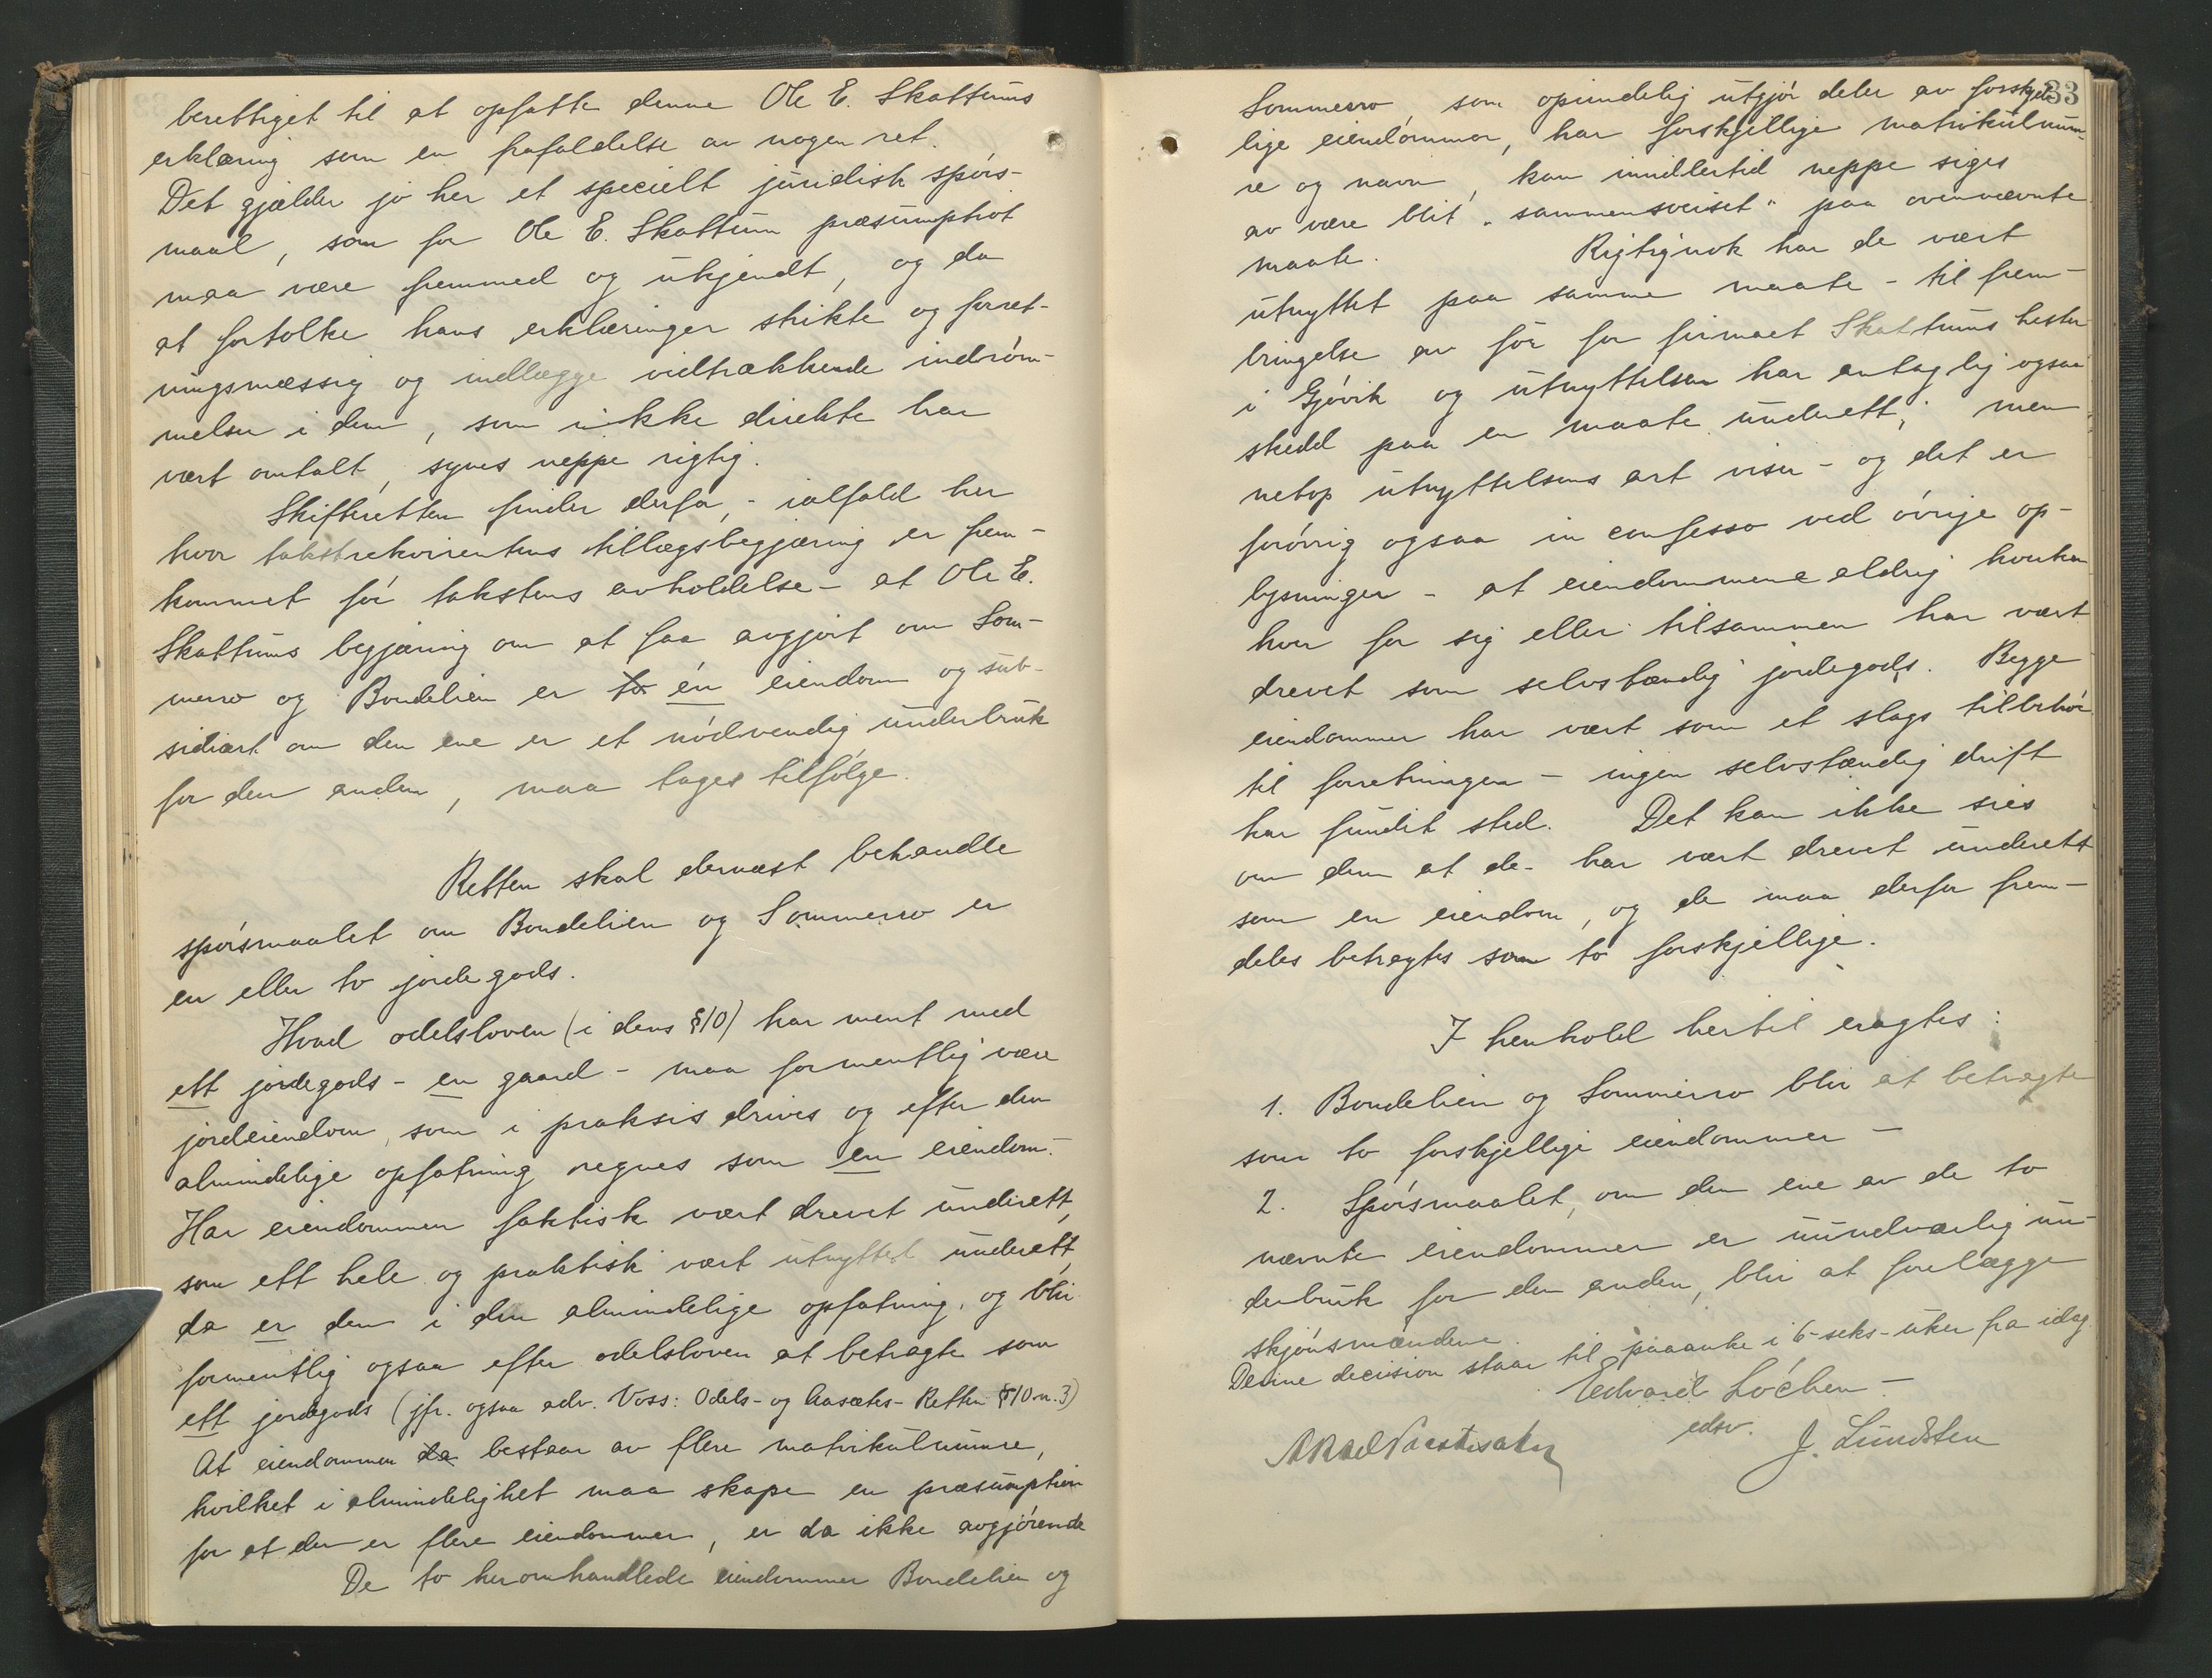 berettiget til at opfatte denne Ole E. Skattums
erklæring som en frafaldelse av nogen ret.
Det gjælder jo her et specielt juridisk spørs-
maal, som for Ole E. Skattum præsumptivt
maa være fremmed og ukjendt, og da
at fortolke hans erklæringer strikte og forret-
ningsmæssig og indlægge vidtrækkende indrøm-
melser i dem, som ikke direkte har
vært omtalt, synes neppe rigtig.
Skifteretten finder derfor, - ialfald her
hvor takstrekvirentens tillægsbegjæring er frem-
kommet før takstens avholdelse - at Ole E.
Skattums begjæring om at faa avgjort om Som-
merro og Bondelien er to én eiendom og sub-
sidiært om den ene er et nødvendig underbruk
for den anden, maa tages tilfølge.
Retten skal dernæst behandle
spørsmaalet om Bondelien og Sommerro er
en eller to jordegods.
Hvad odelsloven (i dens §10) har ment med
ett jordegods - en gaard - maa formentlig være
jordeiendom, som i praksis drives og efter den
almindelige opfatning regnes som en eiendom.-
Har eiendommen faktisk vært drevet underett,
som ett hele og praktisk vært utnyttet underett,
da er den i den almindelige opfatning, og blir
formentlig ogsaa efter odelsloven at betragte som
ett jordegods (jfr. ogsaa adv. Voss: Odels- og Aasætes-Retten §10 n. 3)
At eiendommen da bestaar av flere matrikulnumre,
hvilket i almindelighet maa skape en præsumption
for at der er flere eiendommer, er da ikke avgjørende
De to heromhandlede eiendommer Bondelien og
33
Sommerro som oprindelig utgjør deler av forskjel-
lige eiendommer, har forskjellige matrikulnum-
re og navn, kan imidlertid neppe siges
av være blit "sammensveiset" paa ovennævnte
maate. Rigtignok har de vært
utnyttet paa samme maate - til frem-
bringelse av fôr for firmaet Skattums hester
i Gjøvik og utnyttelsen har antaglig ogsaa
skedd paa en maate underett; men
netop utnyttelsens art viser - og det er
forøvrig ogsaa in confesso ved øvrige op-
lysninger - at eiendommene aldrig hverken
hver for sig eller tilsammen har vært
drevet som selvstændig jordegods. Begge
eiendommer har vært som et slags tilbehør
til forretningen - ingen selvstændig drift
har fundet sted. Det kan ikke sies
om dem at de har vært drevet underett
som en eiendom, og de maa derfor frem-
deles betragtes som to forskjellige.
I henhold hertil eragtes:
1. Bondelien og Sommerro blir at betragte
som to forskjellige eiendommer -
2. Spørsmaalet, om den ene av de to
nævnte eiendommer er uundværlig un-
derbruk for den anden, blir at forelægge
skjønsmændene.
Denne decision staar til paaanke i 6-seks-uker fra idag.
Edvard Løchen -
edsv.
J. Lundsten